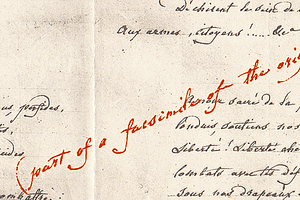 Déchirent le sein de l
Aux armes, citoyens!..... &c
us, perfides,
(part of a facsimile of the ori
Amour sacré de la
Conduis soutiens nos
Liberté! Liberté ché
Combats avec tes déf
Sous nos drapeaux